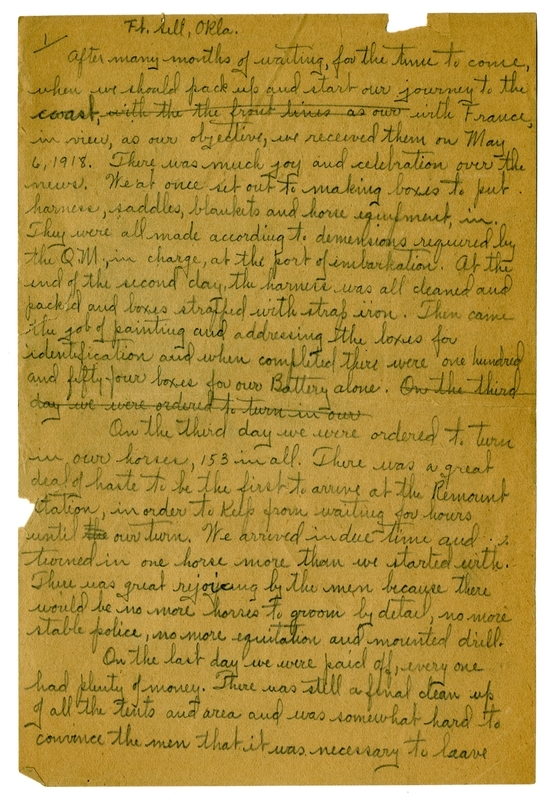 1
Ft. Sill, Okla.
After many months of waiting, for the time to come,
when we should pack up and start our journey to the
coast, with the the front lines as our with France,
in view, as our objective, we received them on May
6, 1918. There was much joy and celebration over the
news. We at once set out to making boxes to put
harness, saddles, blankets and horse equipment, in.
They were all made according to demensions required by
the Q.M., in charge, at the port of embarkation. At the
end of the second day, the harness was all cleaned and
packed and boxes strapped with strap iron. Then came
the job of painting and addressing the boxes for
identification and when completed there were one hundred
and fifty-four boxes for our Battery alone. On the third
day we were ordered to turn in our
On the third day we were ordered to turn
in our horses, 153 in all. There was a great
deal of haste to be the first to arrive at the Remount
Station, in order to keep from waiting for hours
until the our turn. We arrived in due time and
turned in one horse more than we started with.
There was great rejoicing by the men because there
would be no more horses to groom by detail, no more
stable police, no more equitation and mounted drill.
On the last day we were paid off, every one
had plenty of money. There was still a final clean up
of all the tents and area and was somewhat hard to
convince the men that it was necessary to leave